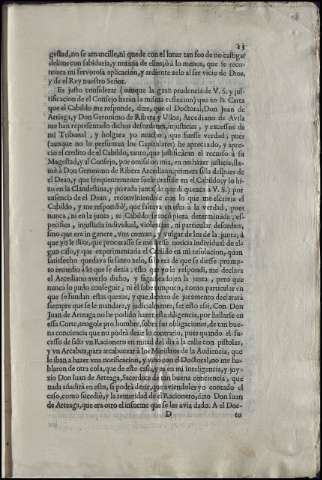 23
gestad, no se amancille, ni quede con el lunar tan feo de no castigar
delictos con sabiduria, y maxima de ellos, ò à lo menos, que se reco-
nozca mi fervorosa aplicacion, y ardiente zelo al servicio de Dios,
y de el Rey nuestro Señor.
Es justo considerar (aunque la gran prudencia de V. S. y jus-
tificacion de el Consejo harán la misma reflexion) que en la Carta
que el Cabildo me responde, dize, que el Doctoral, Don Juan de
Arteaga, y Don Geronimo de Ribera y Ulloa, Arcediano de Avila
me han representado dichos desordenes, injusticias, y excessos de
mi Tribunal, y holgara yo mucho, que fuesse verdad; pues
(aunque no lo pronuncian los Capitulares) he apreciado, y apre-
cio el credito de el Cabildo, tanto, que justificaron el recurso à su
Magestad, y el Consejo, por omision mia, en no hazer justicia, lla-
mè à Don Geronimo de Ribera Arcediano, primera silla despues de
el Dean, y que frequentemente suele presidir en el Cabildo, y lo hi-
zo en la Clandestina, y privada junta (de que di quenta à V. S.) por
ausencia de el Dean, reconviniendole con lo que me escrivia el
Cabildo, y me respondiò, que faltava en esto à la verdad, pues
nunca, ni en la junta, ni Cabildo se tocò pieza determinada, es-
pecifica, injusticia individual, violencia, ni particular desorden,
sino que era in genere, vna comun, y vulgar de los de la junta, à
que yo le dixe, que procurasse se me diesse noticia individual de al-
gun caso, y que experimentaria el Cabildo en mi resolucion, quan
satisfecho quedava su santo zelo, en fee de que se diesse prompto
remedio à lo que se devia; esto que yo le respondi, me declara
el Arcediano averlo dicho, y suplicadolo en la junta, pero que
nunca lo pudo conseguir, ni el saber tampoco, como particular en
que se fundan estas quexas, y que debaxo de juramento declararà
siempre que se le mandare, y judicialmente, ser esto assi. Con Don
Juan de Arteaga no he podido hazer esta diligencia, por hallarse en
essa Corte, tengole por hombre, sobre sus obligaciones, de tan bue-
na conciencia que no podrá dezir lo contrario, pues quando el su-
cesso de salir vn Racionero en mitad del dia à la calle con pistolas,
y vn Arcabuz, para arcabuzear à los Ministros de la Audiencia, que
le iban à hazer vna notificacion, y vno con el Doctoral, no me ha-
blaron de otra cosa, que de este caso, y es en mi inteligencia, y juy-
zio Don Juan de Arteaga, Sacerdote de tan buena conciencia, que
nada añadirà en esto, ni podrà dezir, que aviendoles yo contado el
caso, como sucediò, y la temeridad de el Racionero, dixo Don Juan
de Arteaga, que era otro el informe que se les avia dado. A el Doc-
D
to